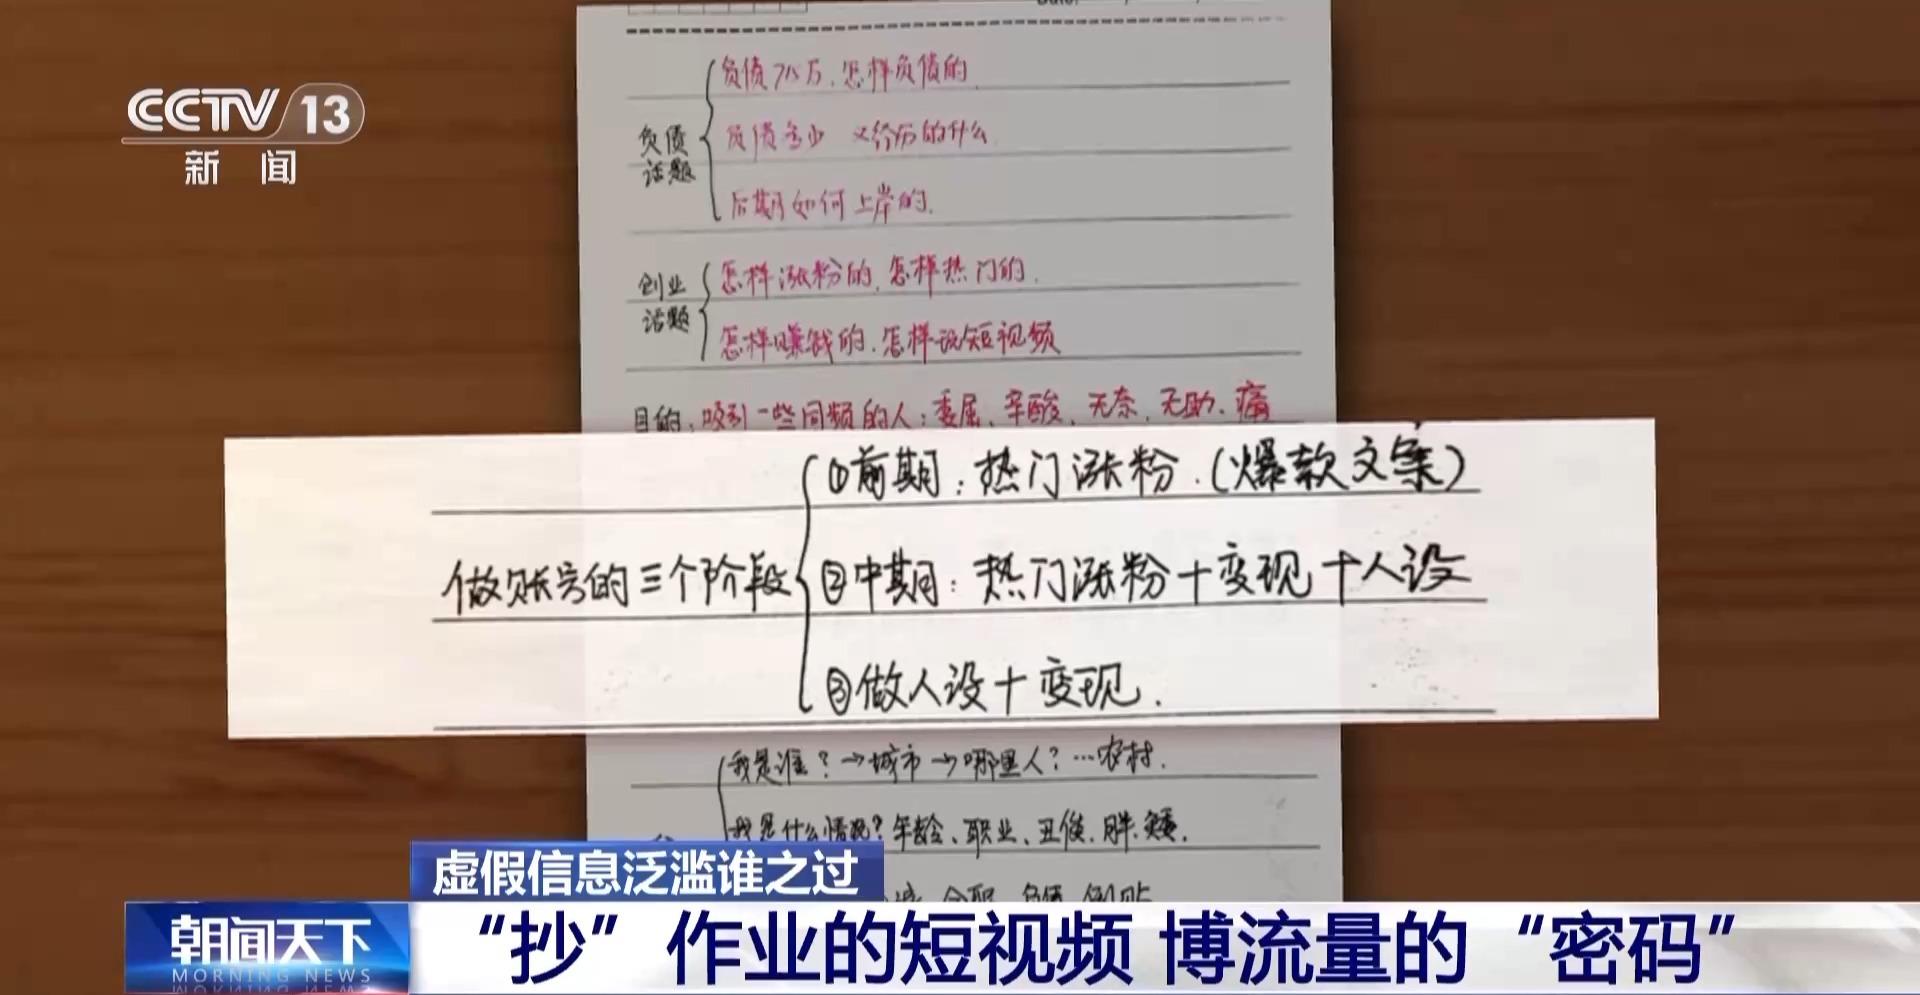 CCTV 13
新闻
负债话题
负债71万,怎样负债的
负债多少 又经历的什么
后期如何上岸的.
创业话题
怎样涨粉的,怎样热门的.
怎样赚钱的.怎样设短视频
目的:吸引一些同频的人:委屈、辛酸、无奈、无助、痛
做账号的三个阶段
①前期:热门涨粉.(爆款文案)
②中期:热门涨粉+变现+人设
③做人设+变现.
我是谁?→城市→哪里人?…农村.
我是什么情况?年龄、职业、丑俊.胖.矮.
虚假信息泛滥谁之过
朝闻天下
MORNING NEWS
“抄”作业的短视频 博流量的“密码”